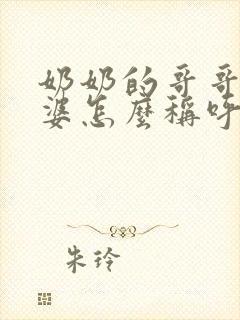 奶奶的哥哥
婆怎麼稱呼
朱玲